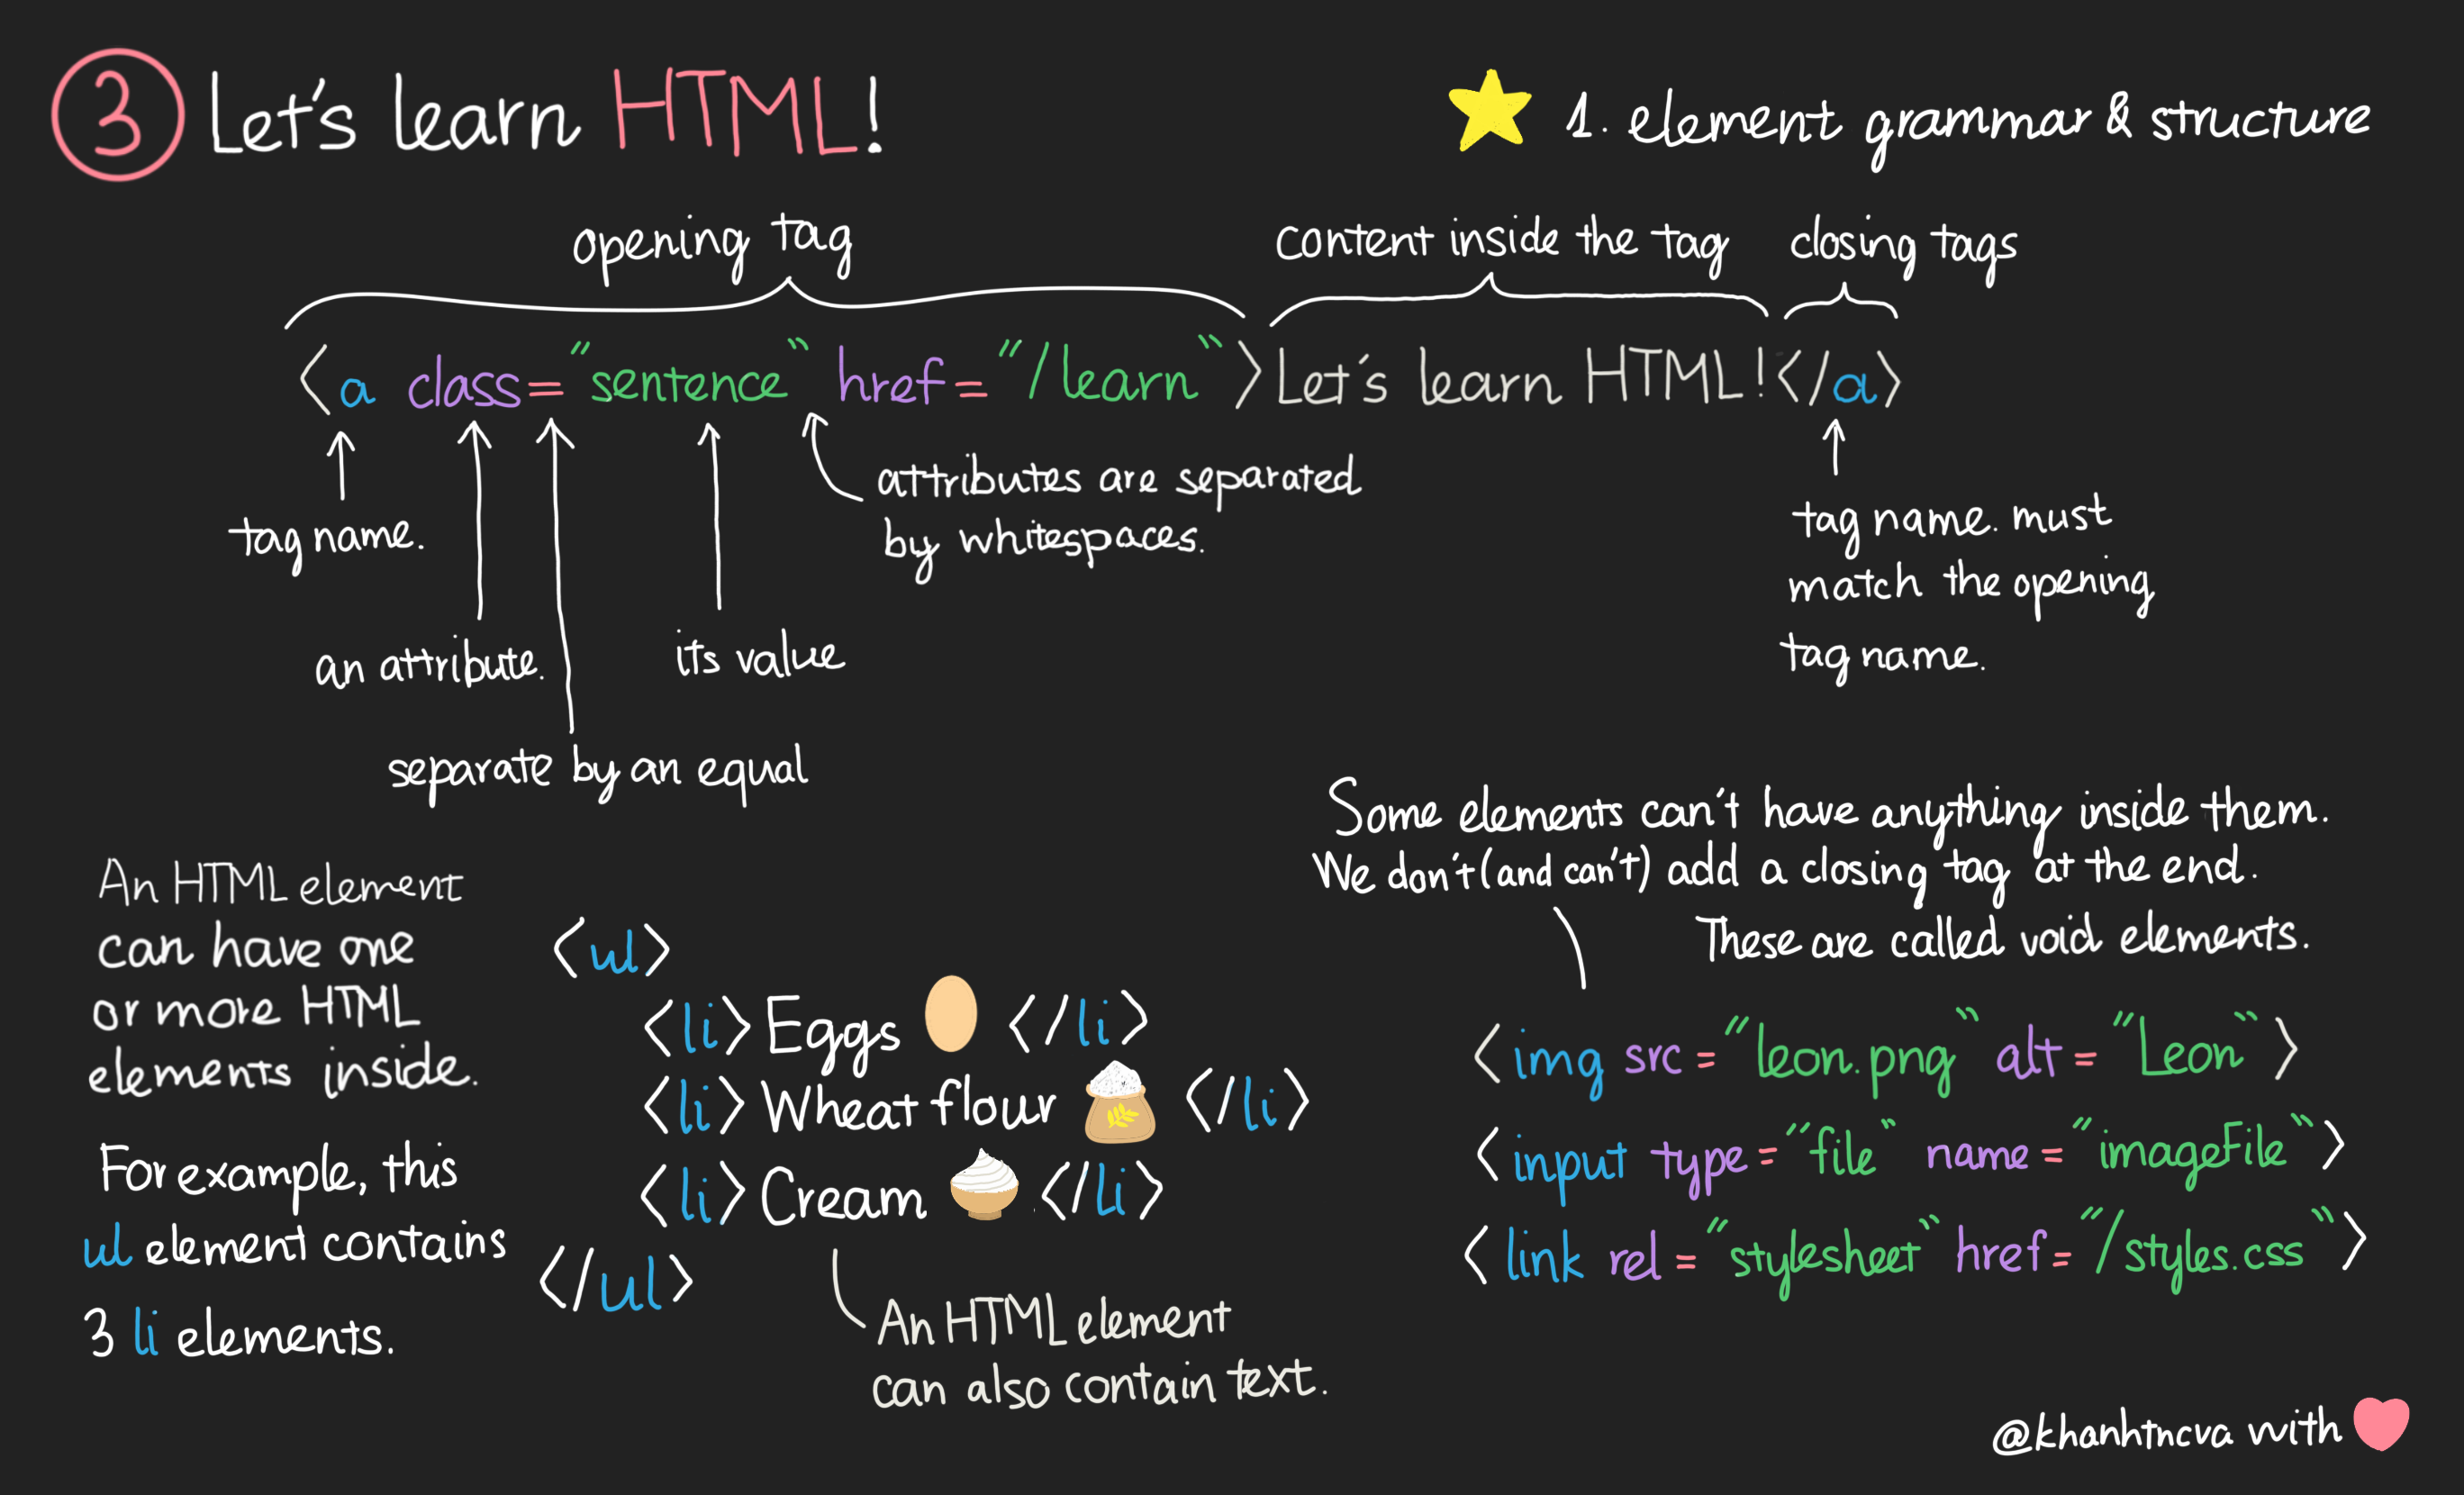 3 Let's learn HTML!
1. element grammar & structure
opening tag
content inside the tag
closing tags
<a class="sentence" href="/learn">Let's learn HTML!</a>
tag name.
an attribute.
separate by an equal
its value
attributes are separated
by whitespaces.
tag name. must
match the opening
tag name.
An HTML element
can have one
or more HTML
elements inside.
For example, this
ul element contains
3 li elements.
<ul>
<li>Eggs </li>
<li>Wheat flour </li>
<li>Cream </li>
</ul>
An HTML element
can also contain text.
Some elements can't have anything inside them.
We don't (and can't) add a closing tag at the end.
These are called void elements.
<img src="leon.png" alt="Leon">
<input type="file" name="imageFile">
<link rel="stylesheet" href="/styles.css">
@khanhtncva with